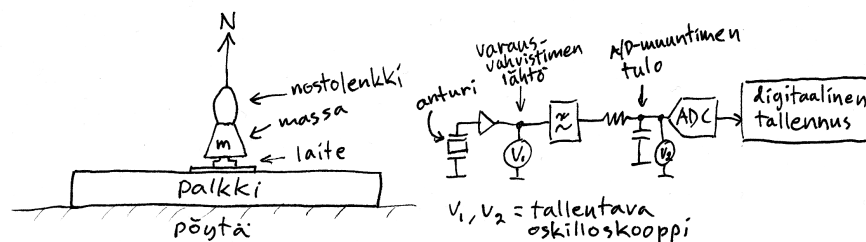 N
nostolenkki
massa
m
laite
palkki
pöytä
anturi
varaus-
vahvistimen
lähtö
A/D-muuntimen
tulo
V₁
V₂
ADC
digitaalinen
tallennus
V₁, V₂ = tallentava
oskilloskooppi